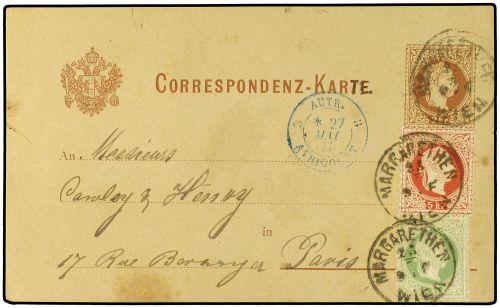 CORRESPONDENZ-KARTE.
AUTR.
3 * 27 3
MAI
77
AVRICOURT
MARGARETHEN
WIEN
An Messieurs
Cawley & Henry
in Paris
17 Rue Beranger
MARGARETHEN
WIEN
5 Kr.
MARGARETHEN
WIEN